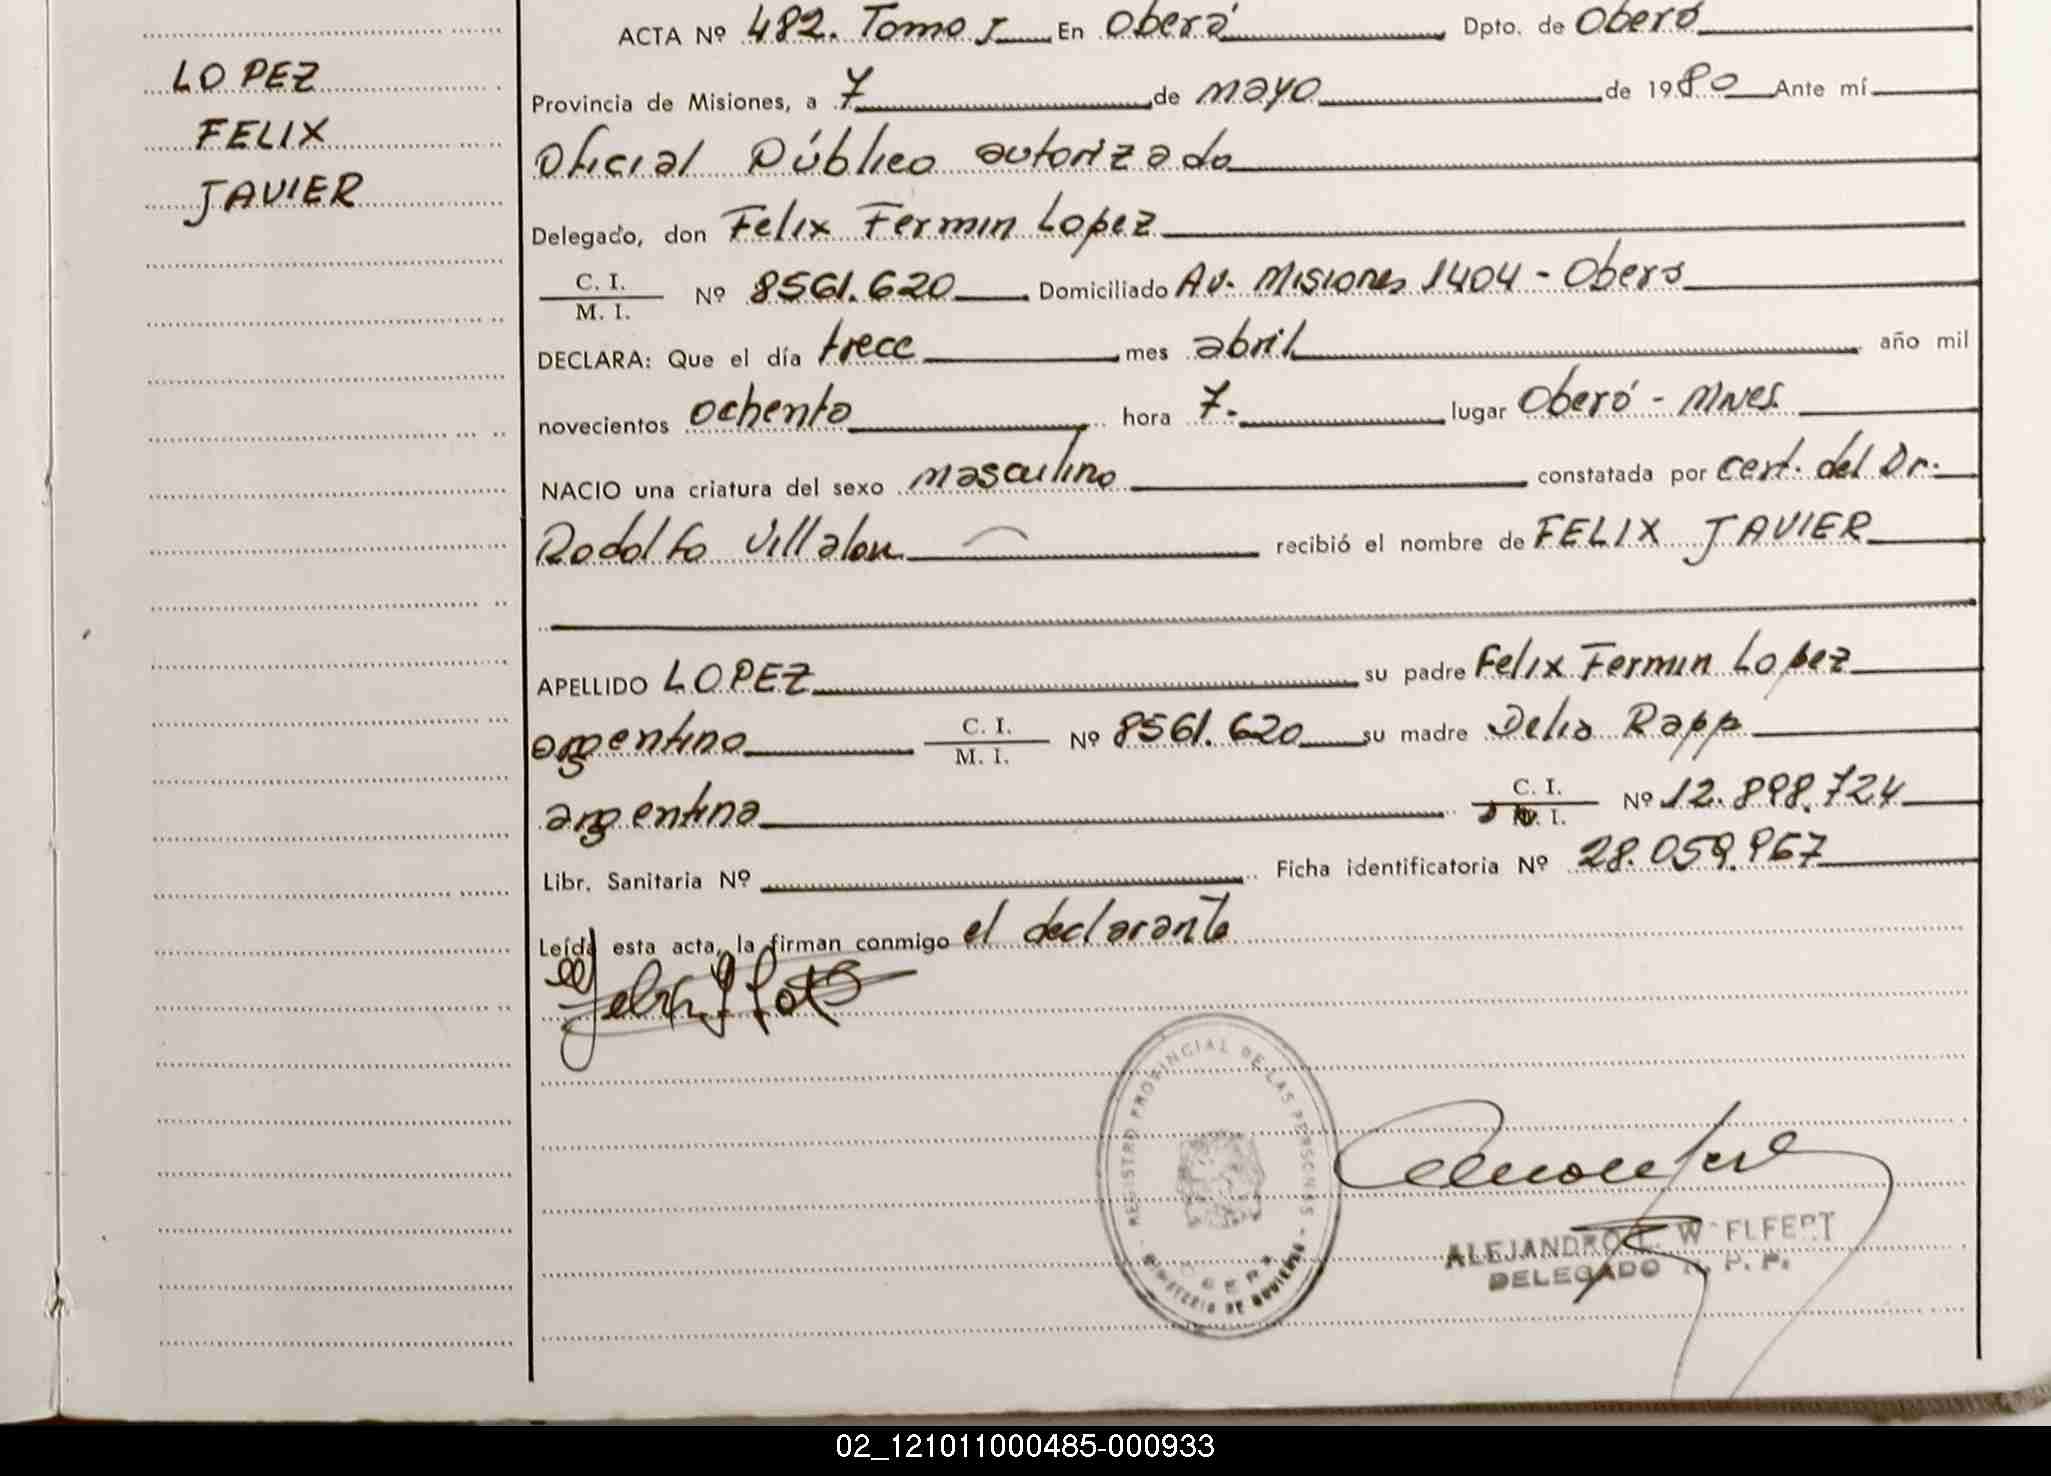 LOPEZ
FELIX
JAVIER
ACTA Nº 482. Tomo I En Oberá Dpto. de Oberá
Provincia de Misiones, a 7 de mayo de 1980 Ante mí
Oficial Público autorizado
Delegado, don Felix Fermin Lopez
C. I.
M. I. Nº 8561.620 Domiciliado Av. Misiones 1404 - Obera
DECLARA: Que el día trece mes abril año mil
novecientos ochenta hora 7. lugar Oberá - Mnes.
NACIO una criatura del sexo masculino constatada por cert. del Dr.
Rodolfo Villalon recibió el nombre de FELIX JAVIER
APELLIDO LOPEZ su padre Felix Fermin Lopez
argentino C. I.
M. I. Nº 8561.620 su madre Delia Rapp
argentina C. I.
M. I. Nº 12.898.724
Libr. Sanitaria Nº Ficha identificatoria Nº 28.059.967
Leída esta acta, la firman conmigo el declarante
REGISTRO PROVINCIAL DE LAS PERSONAS
OBERA
MINISTERIO DE GOBIERNO
ALEJANDRO
DELEGADO R. P. P.
02_121011000485-000933